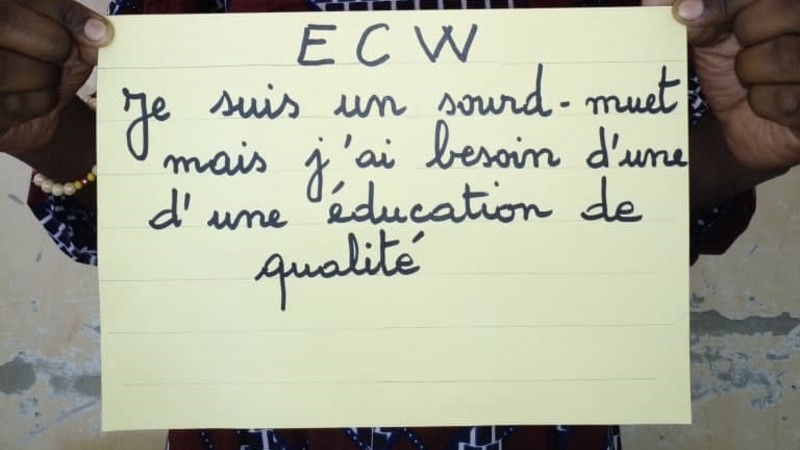 ECW
Je suis un sourd-muet
mais j'ai besoin d'une
d'une éducation de
qualité